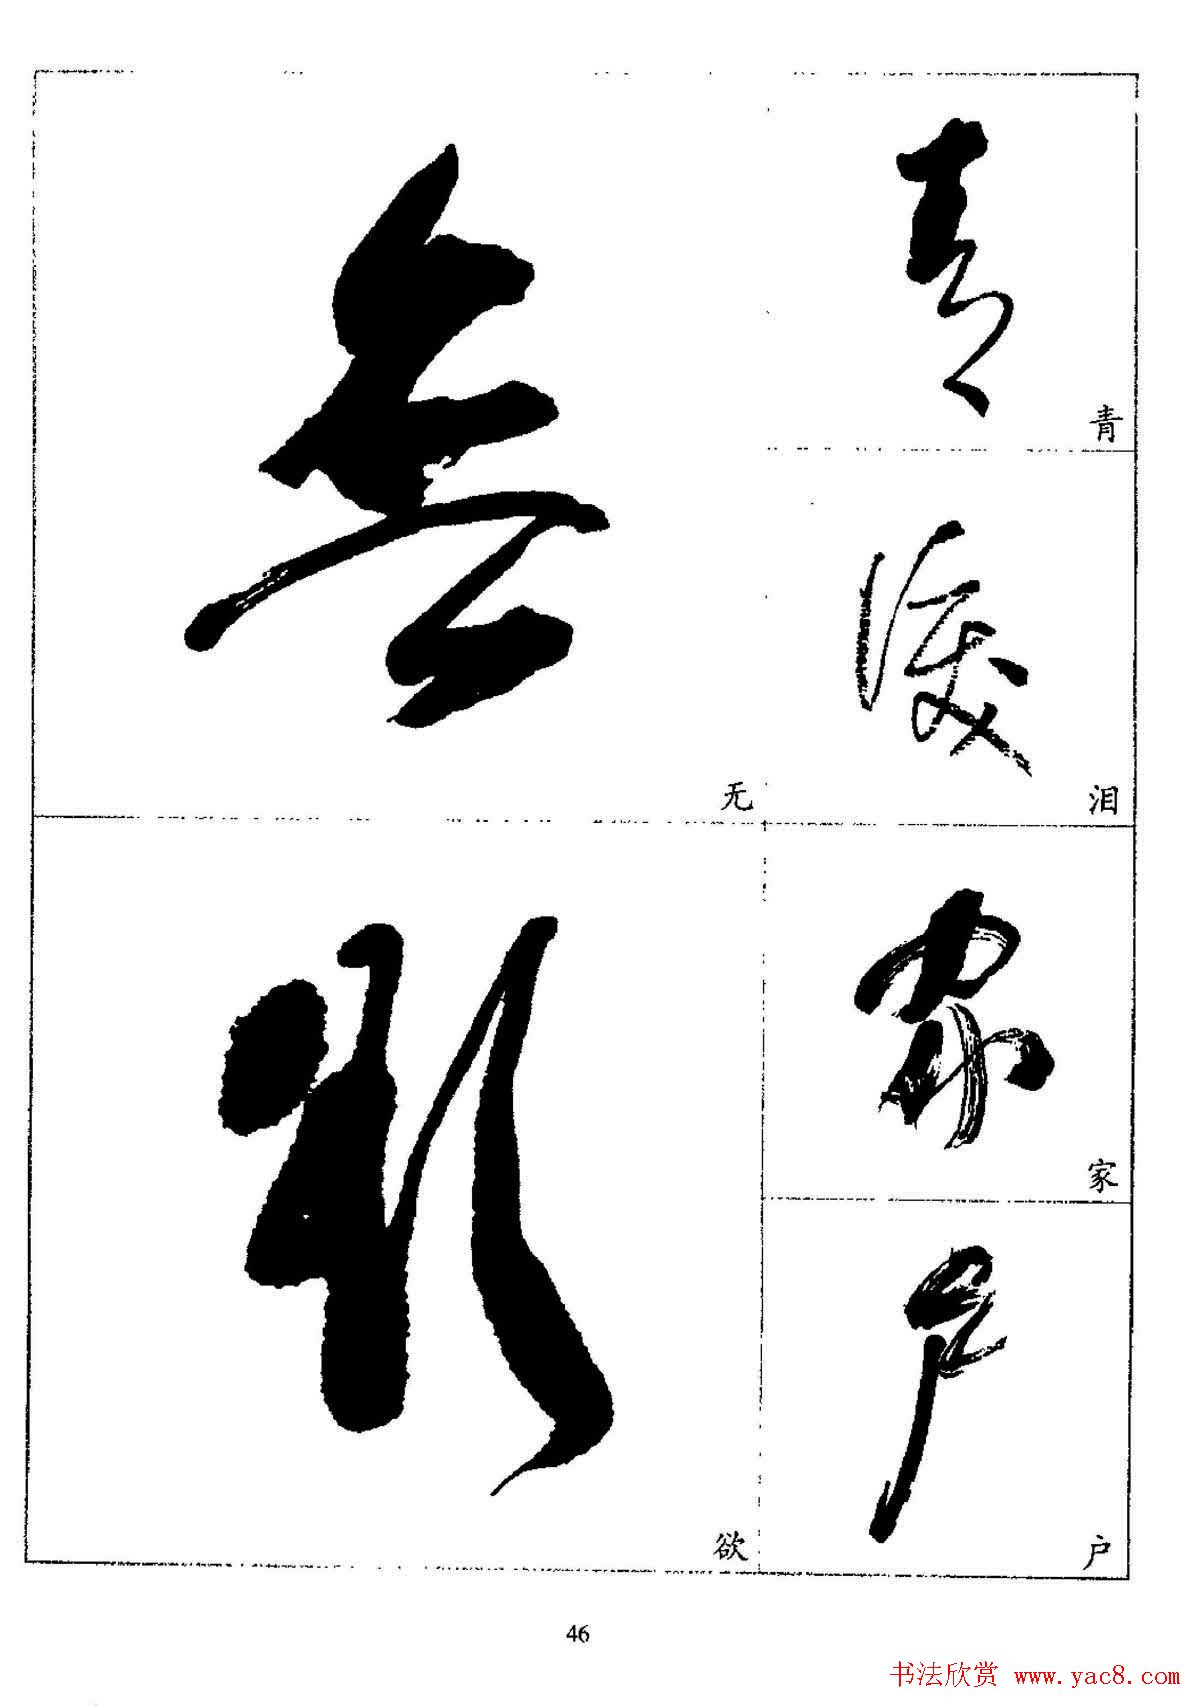 青
泪
家
户
无
欲
46
书法欣赏 www.yac8.com